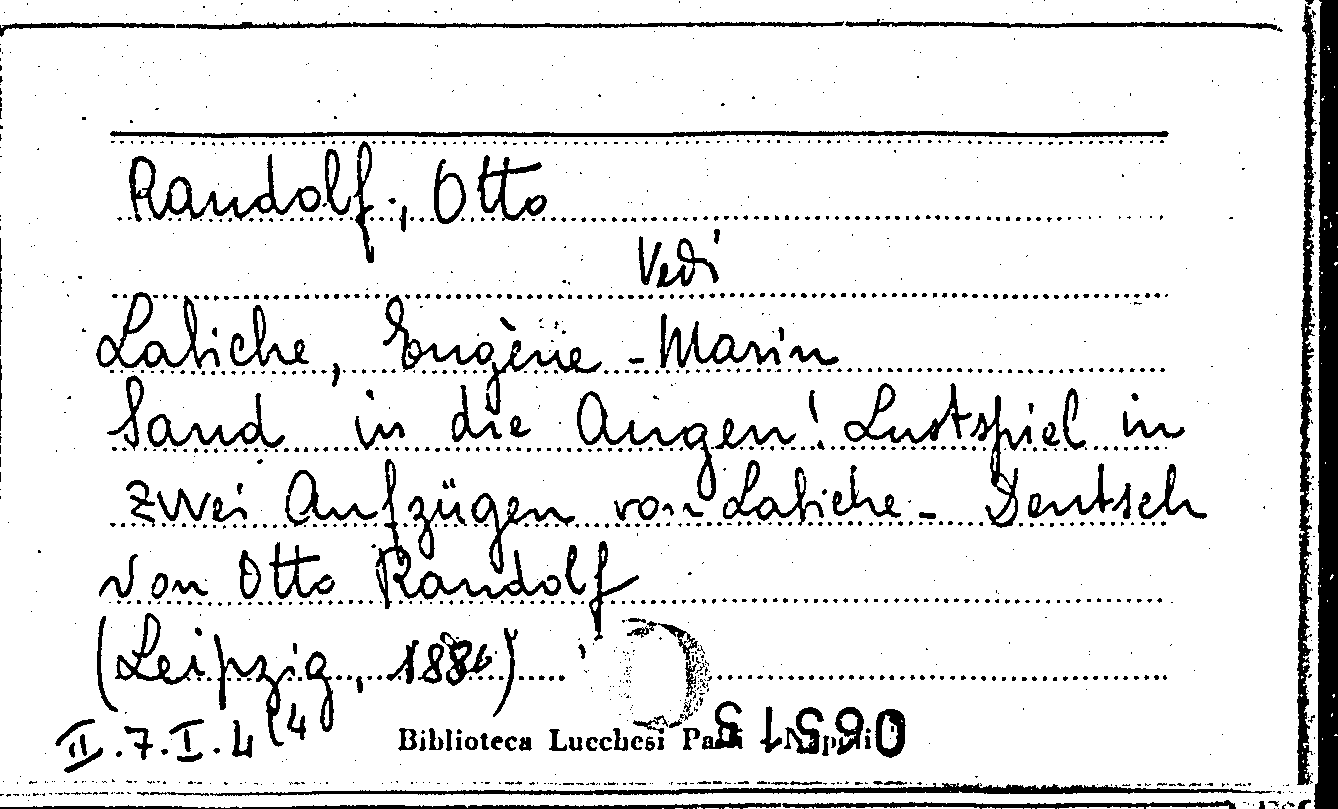 Randolf, Otto
Vedi
Labiche, Eugène-Marin
Sand in die Augen! Lustspiel in
zwei Aufzügen von Labiche - Deutsch
von Otto Randolf
(Leipzig, 188)
II.7.I.4(4
Biblioteca Lucchesi Palli - Napoli